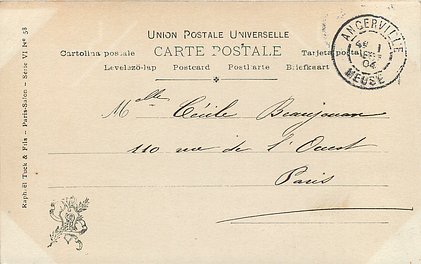 UNION POSTALE UNIVERSELLE
CARTE POSTALE
Cartolina postale Tarjeta postal
Levelező-lap Postcard Postkarte Briefkaart
ANGERVILLE
1
04
MEUSE
Mlle Cécile Beaujouan
110 rue de l'Ouest
Paris
Raphaël Tuck & Fils – Paris-Salon – Serie VI No 58